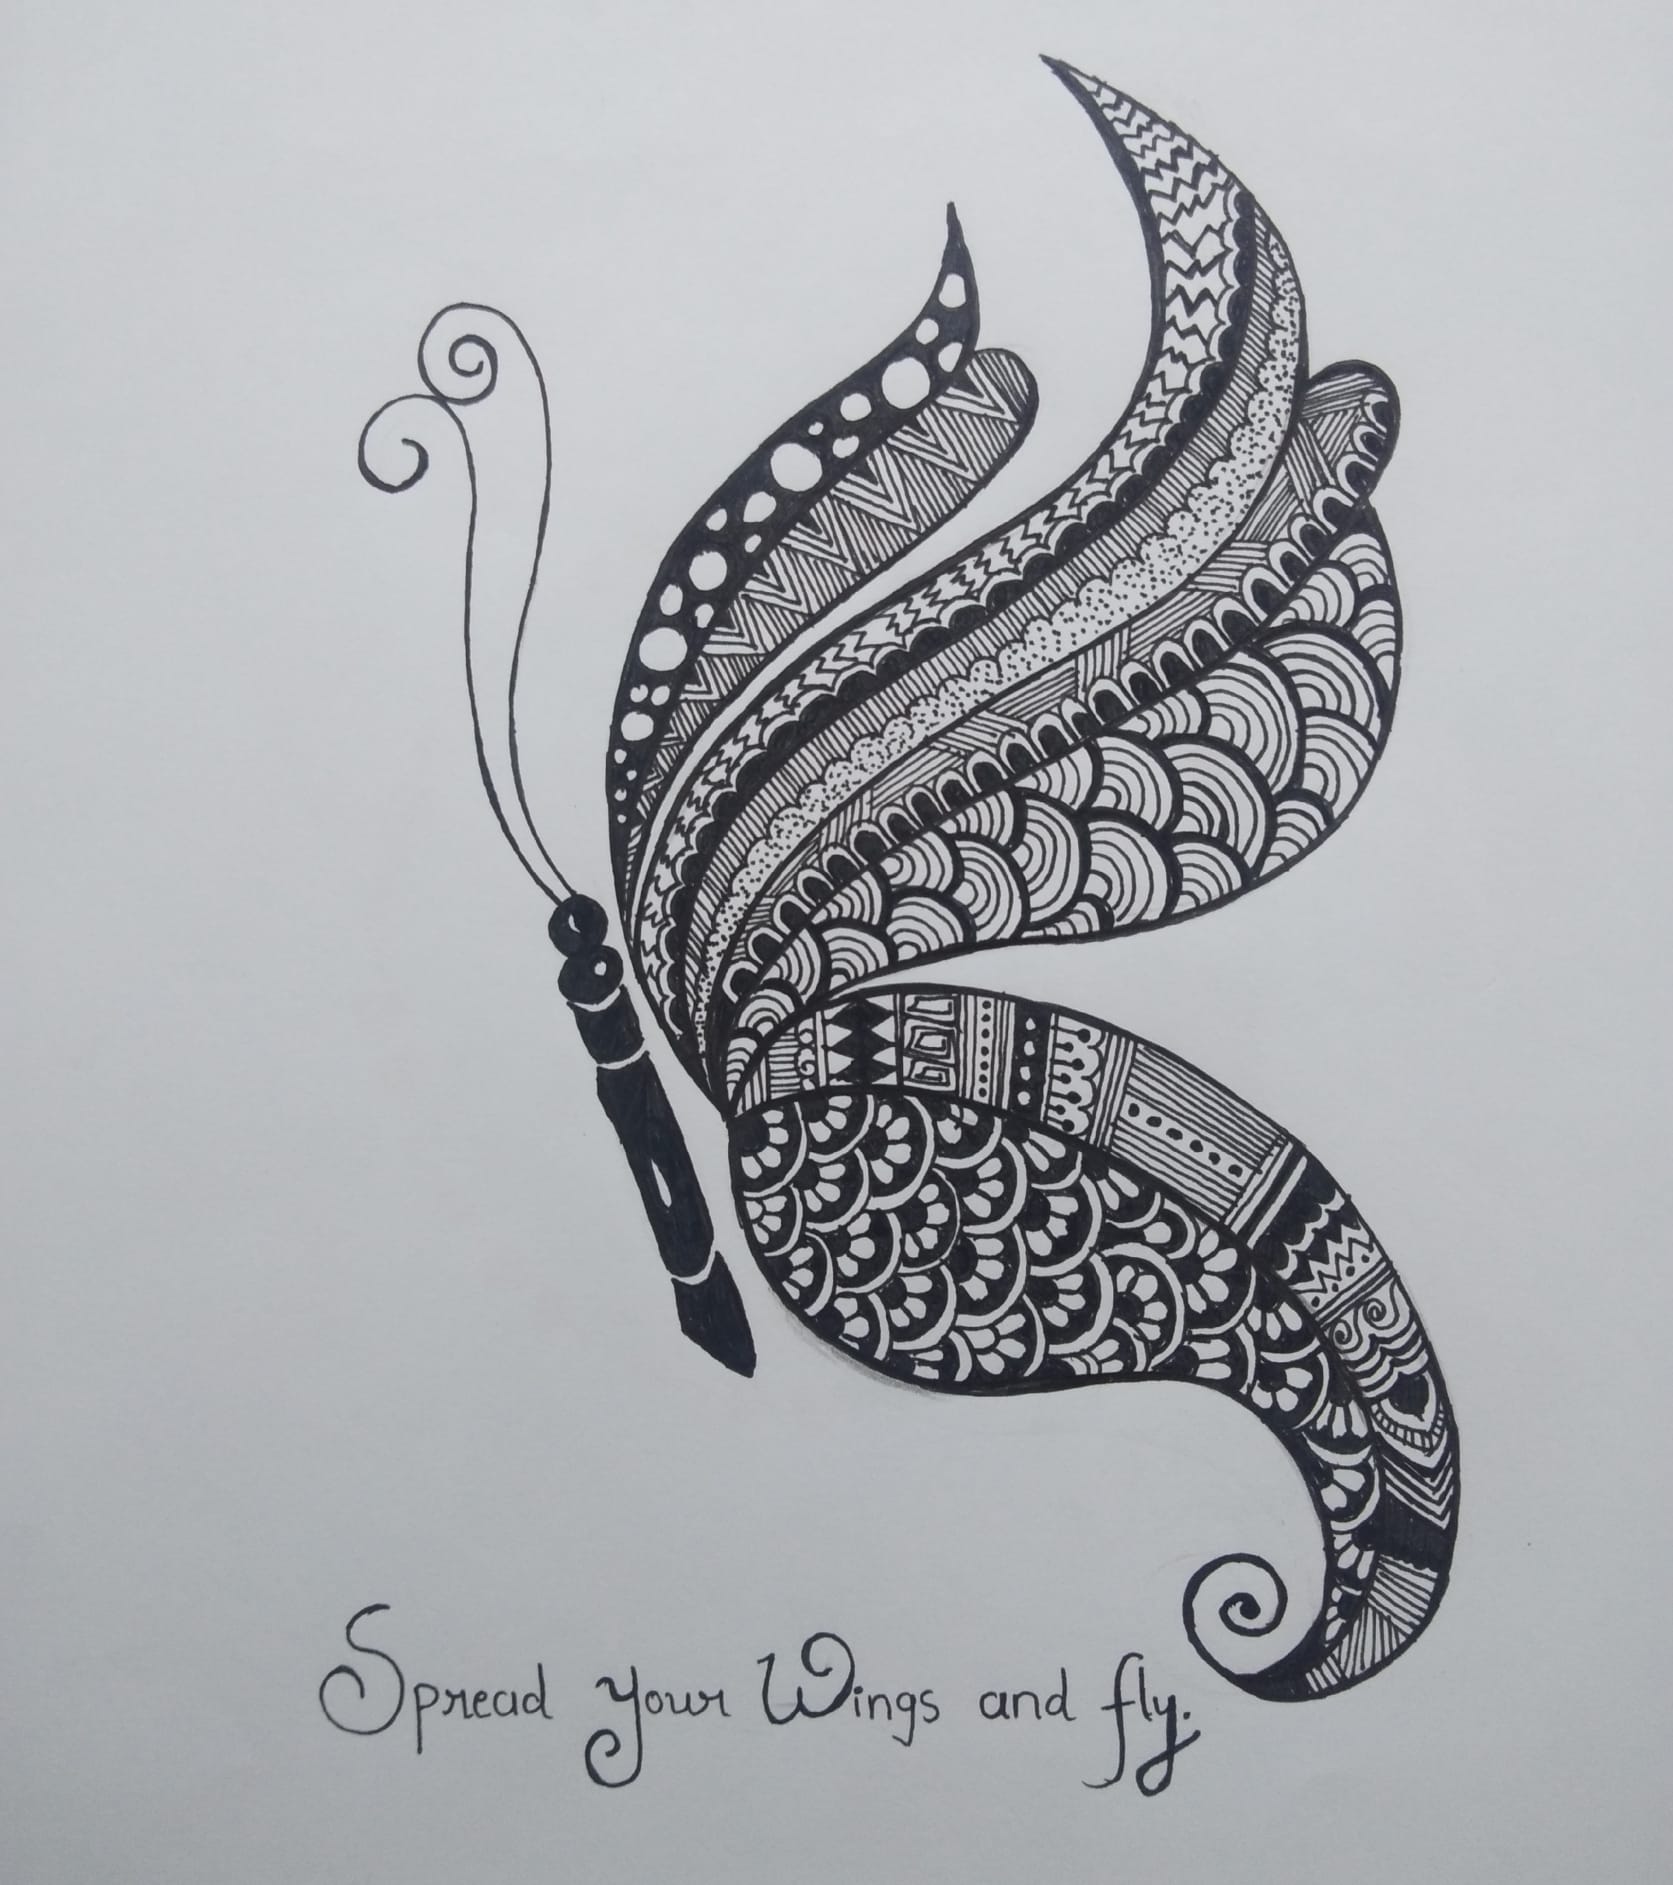 Spread your Wings and fly.